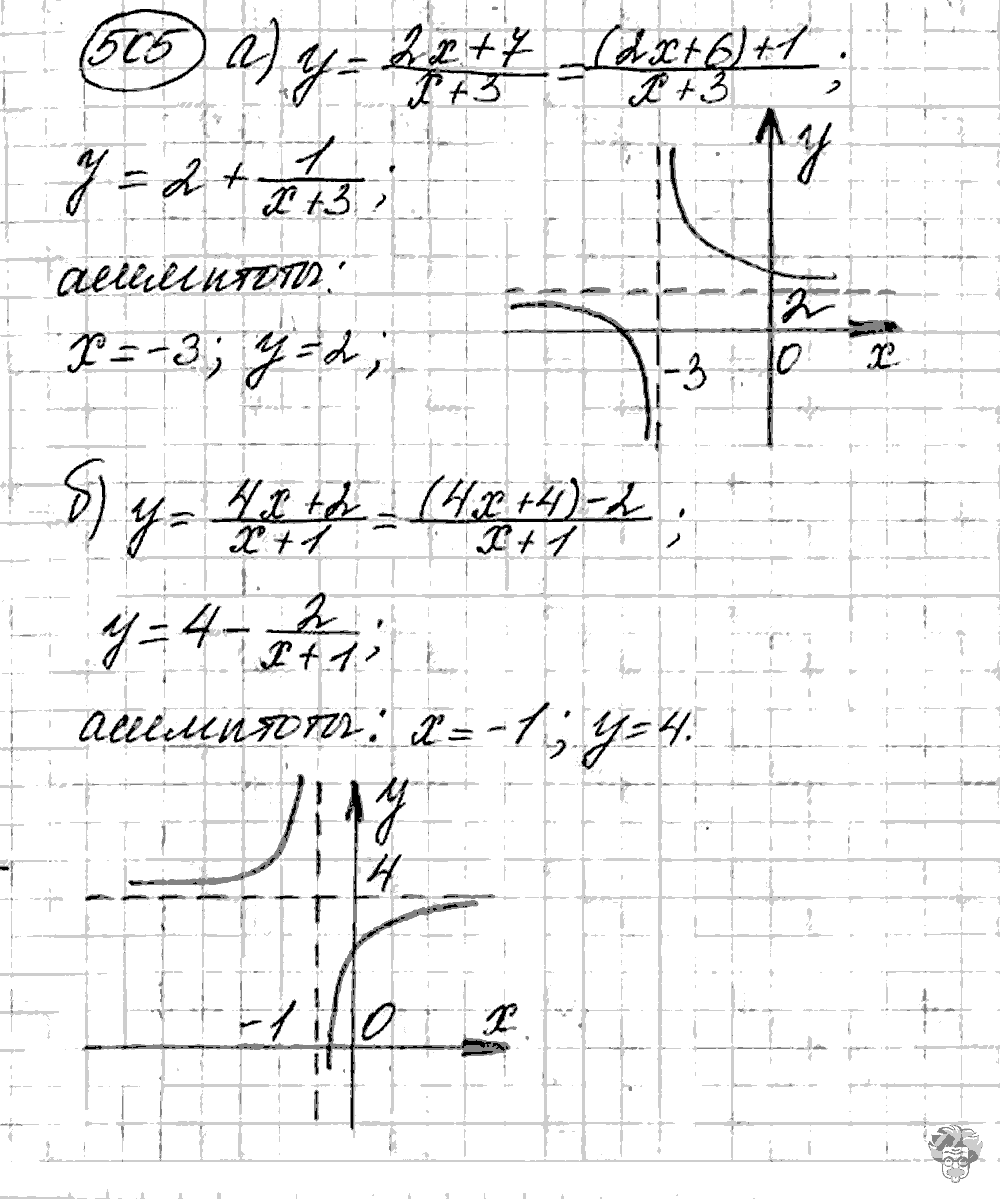 505 а) y = (2x+7)/(x+3) = ((2x+6)+1)/(x+3) ;
y = 2 + 1/(x+3) ;
асимптоты:
x = -3; y = 2;
y
2
-3
0
x
б) y = (4x+2)/(x+1) = ((4x+4)-2)/(x+1) ;
y = 4 - 2/(x+1) ;
асимптоты: x = -1; y = 4.
y
4
-1
0
x